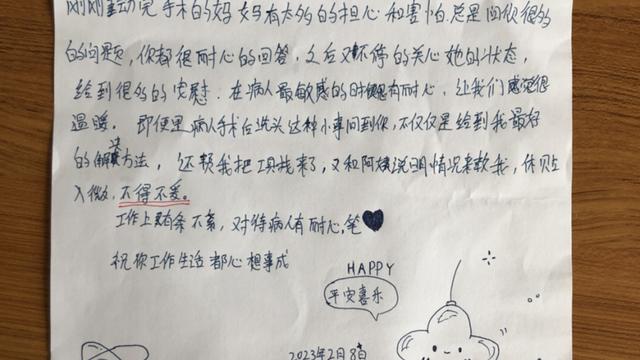 刚刚动完手术的妈妈有太多的担心和害怕总是问你很多
的问题,你都很耐心的回答,之后又不停的关心她的状态,
给到很多的安慰.在病人最敏感的时候有耐心,让我们感觉很
温暖。即便是病人手术后洗头这种小事问到你,不仅仅是给到我最好
的解决方法,还帮我把工具找来了,又和阿姨说明情况来教我,体贴
入微,不得不爱。
工作上有条不紊,对待病人有耐心,笔
祝你工作生活都心想事成
HAPPY
平安喜乐
2023年2月8日